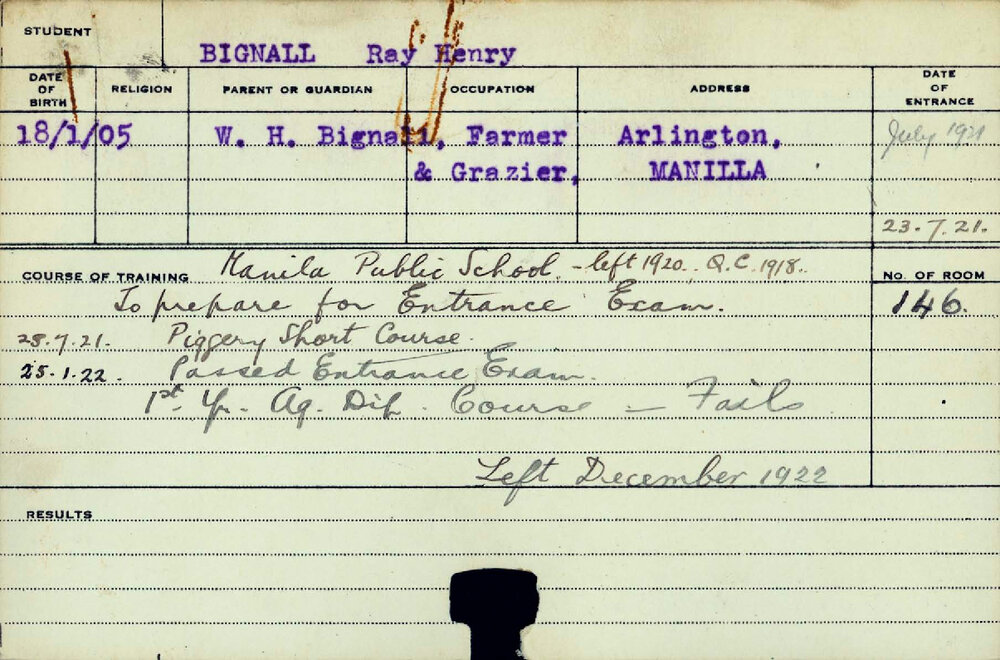 STUDENT
BIGNALL Ray Henry
DATE OF BIRTH RELIGION PARENT OR GUARDIAN OCCUPATION ADDRESS DATE OF ENTRANCE
18/1/05 W. H. Bignall, Farmer Arlington, July 1921
& Grazier, MANILLA
23.7.21.
COURSE OF TRAINING Manila Public School. - left 1920. Q.C. 1918. No. OF ROOM
To prepare for Entrance Exam. 146.
28.7.21. Piggery Short Course.
25.1.22. Passed Entrance Exam.
1st Yr. Ag. Dip. Course - Fails
Left December 1922
RESULTS